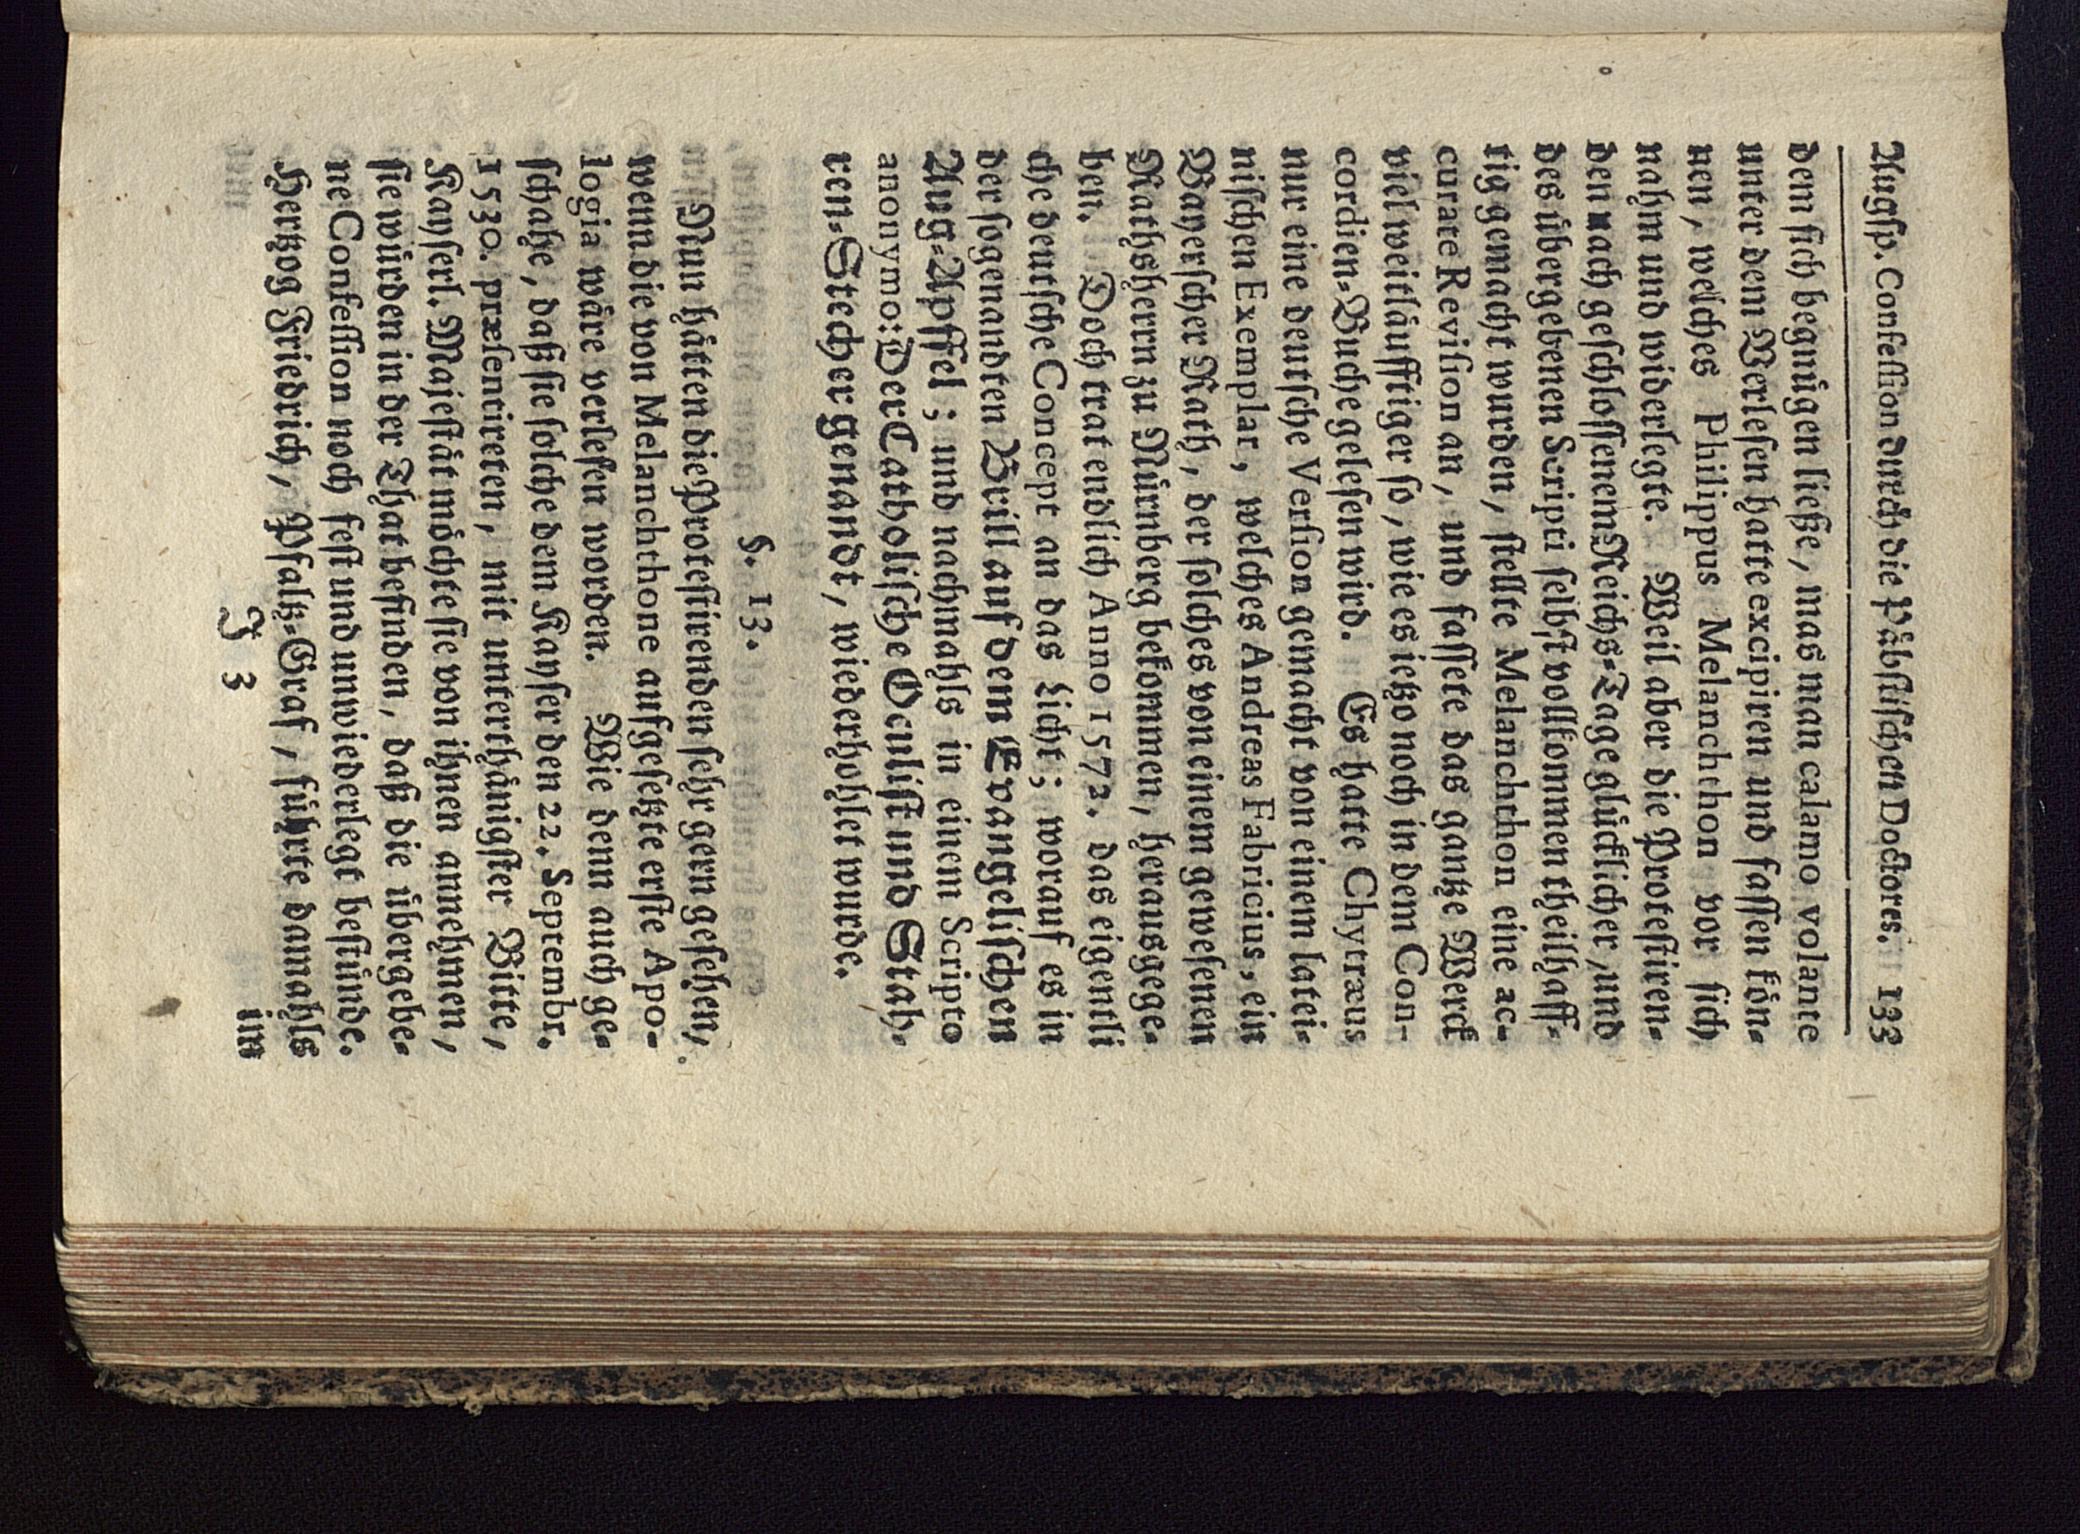 Augſp. Confeſſion durch die Päbſtiſchen Doctores. 133
dem ſich begnügen lieſze, was man calamo volante
unter dem Verleſen hatte excipiren und faſſen kön-
nen, welches Philippus Melanchthon vor ſich
nahm und widerlegte. Weil aber die Proteſtiren-
den nach geſchloſſenem Reichs-Tage glücklicher, und
des übergebenen Scripti ſelbſt vollkommen theilhaff-
tig gemacht wurden, ſtellte Melanchthon eine ac-
curate Reviſion an, und faſſete das gantze Werck
viel weitläufftiger ſo, wie es ietzo noch in dem Con-
cordien-Buche geleſen wird. Es hatte Chytræus
nur eine deutſche Verſion gemacht von einem latei-
niſchen Exemplar, welches Andreas Fabricius, ein
Bayerſcher Rath, der ſolches von einem geweſenen
Rathsherrn zu Nürnberg bekommen, herausgege-
ben. Doch trat endlich Anno 1572. das eigentli
che deutſche Concept an das Licht; worauf es in
der ſogenandten Brill auf dem Evangeliſchen
Aug-Apffel; und nachmahls in einem Scripto
anonymo: Der Catholiſche Oculiſt und Stah-
ren-Stecher genandt, wiederhohlet wurde.
§. 13.
Nun hätten die Proteſtirenden ſehr gern geſehen,
wenn die von Melanchthone aufgeſetzte erſte Apo-
logia wäre verleſen worden. Wie denn auch ge-
ſchahe, daß ſie ſolche dem Kayſer den 22. Septembr.
1530. præſentireten, mit unterthänigſter Bitte,
Kayſerl. Majeſtät möchte ſie von ihnen annehmen,
ſie würden in der That befinden, daß die übergebe-
ne Confeſſion noch feſt und unwiederlegt beſtünde.
Hertzog Friedrich, Pfaltz-Graf, führte damahls
J 3
im